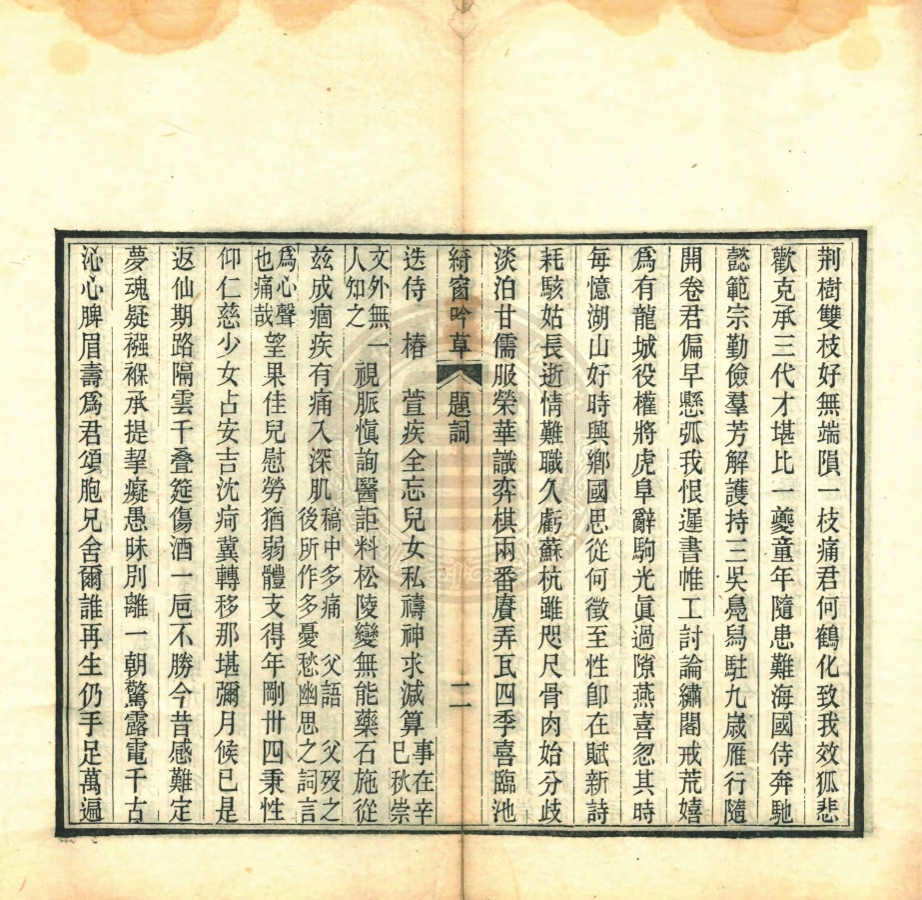 荆樹雙枝好無端隕一枝痛君何鶴化致我效狐悲
歡克承三代才堪比一夔童年隨患難海國侍奔馳
懿範宗勤儉羣芳解護持三吳鳧舄駐九嵗雁行隨
開卷君偏早懸弧我恨遲書帷工討論繡閣戒荒嬉
爲有龍城役權將虎阜辭駒光眞過隙燕喜忽其時
每憶湖山好時興鄉國思從何徵至性卽在賦新詩
耗駭姑長逝情難職久虧蘇杭雖咫尺骨肉始分歧
淡泊甘儒服榮華識弈棋兩番賡弄瓦四季喜臨池
綺窗吟草 題詞 二
迭侍 椿 萱疾全忘兒女私禱神求減算事在辛巳秋崇
文外無人知之一視脈愼詢醫詎料松陵變無能藥石施從
兹成痼疾有痛入深肌稿中多痛 父語 父歿之後所作多憂愁幽思之詞言
爲心聲也痛哉望果佳兒慰勞猶弱體支得年剛卅四秉性
仰仁慈少女占安吉沈疴冀轉移那堪彌月候已是
返仙期路隔雲千疊筵傷酒一巵不勝今昔感難定
夢魂疑襁褓承提挈癡愚昧別離一朝驚露電千古
沁心脾眉壽爲君頌胞兄舍爾誰再生仍手足萬遍